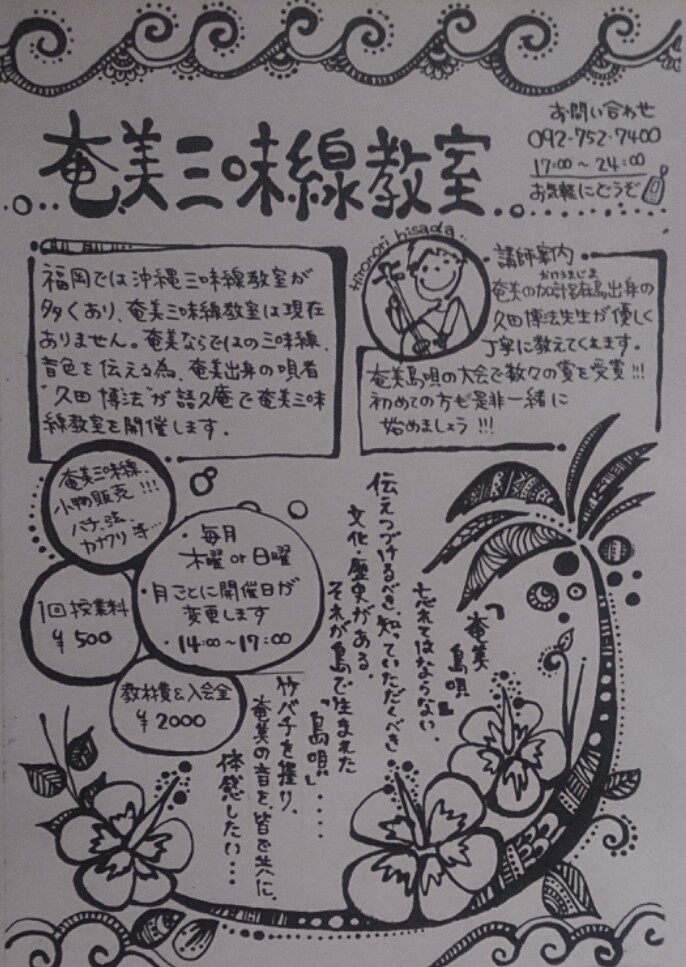 お問い合わせ
092-752-7400
17:00~24:00
お気軽にどうぞ
奄美三味線教室
福岡では沖縄三味線教室が
多くあり、奄美三味線教室は現在
ありません。奄美ならではの三味線、
音色を伝える為、奄美出身の唄者
"久田 博法"が語久庵で奄美三味
線教室を開催します。
Hironori hisada
講師案内
かけろまじま
奄美の加計呂麻島出身の
久田博法先生が優しく
丁寧に教えてくれます。
奄美島唄の大会で数々の賞を受賞!!!
初めての方も是非一緒に
始めましょう!!!
奄美三味線、
小物販売!!!
バチ、弦
カナクリ 等…
・毎月
木曜 or 日曜
・月ごとに開催日が
変更します
・14:00~17:00
1回授業料
¥500
教材費&入会金
¥2000
『奄美
島唄』
忘れてはならない、
伝えつづけるべき、知っていただくべき
文化・歴史がある。
それが島で生まれた
「島唄」....
竹バチを握り、
奄美の音を、皆で共に、
体感したい…